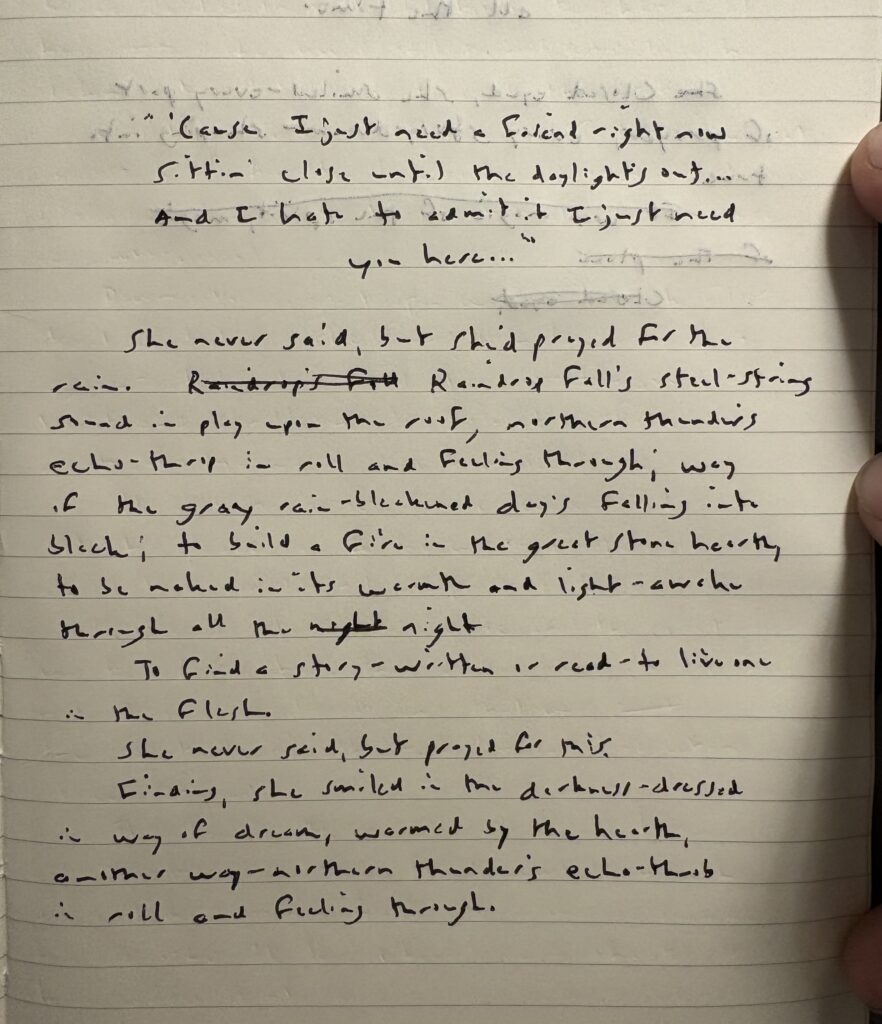 "'Cause I just need a friend right now
Sittin' close until the daylight's out...
And I hate to admit it I just need
you here..."
She never said, but she'd prayed for the
rain. Raindrop's Fall Raindrop Fall's steel-string
sound in play upon the roof, northern thunder's
echo-throb in roll and feeling through; way
of the gray rain-blackened day's falling into
black; to build a fire in the great stone hearth,
to be naked in its warmth and light-awake
through all the night night
To find a story-written or read-to live one
in the flesh.
She never said, but prayed for this.
Finding, she smiled in the darkness-dressed
in way of dream, warmed by the hearth,
another way-northern thunder's echo-throb
in roll and feeling through.